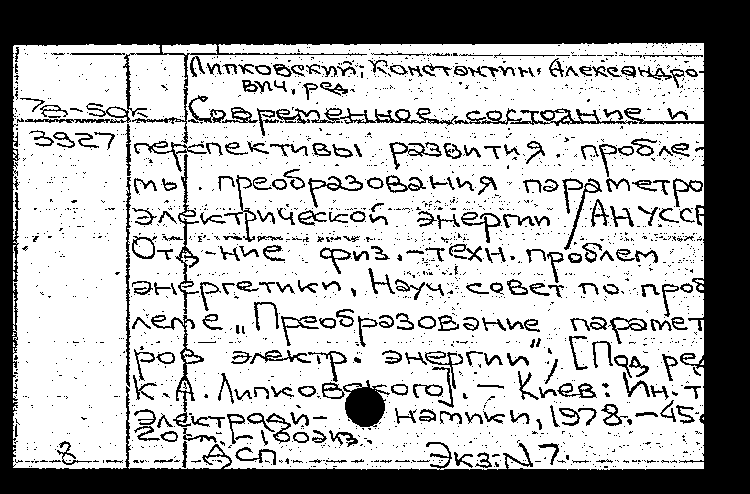 Липковский, Константин Александро-
вич, ред.
78-50к Современное состояние и
3927 перспективы развития пробле-
мы преобразования параметро
электрической энергии / АН УССР
Отд-ние физ.-техн. проблем
энергетики, Науч. совет по проб
леме „Преобразование парамет
ров электр. энергии"; [Под ред
К.А. Липковского]. — Киев: Ин. т
Электроди- намики, 1978.-45с
20см.- 160экз.
8 Дсп. Экз.N 7.